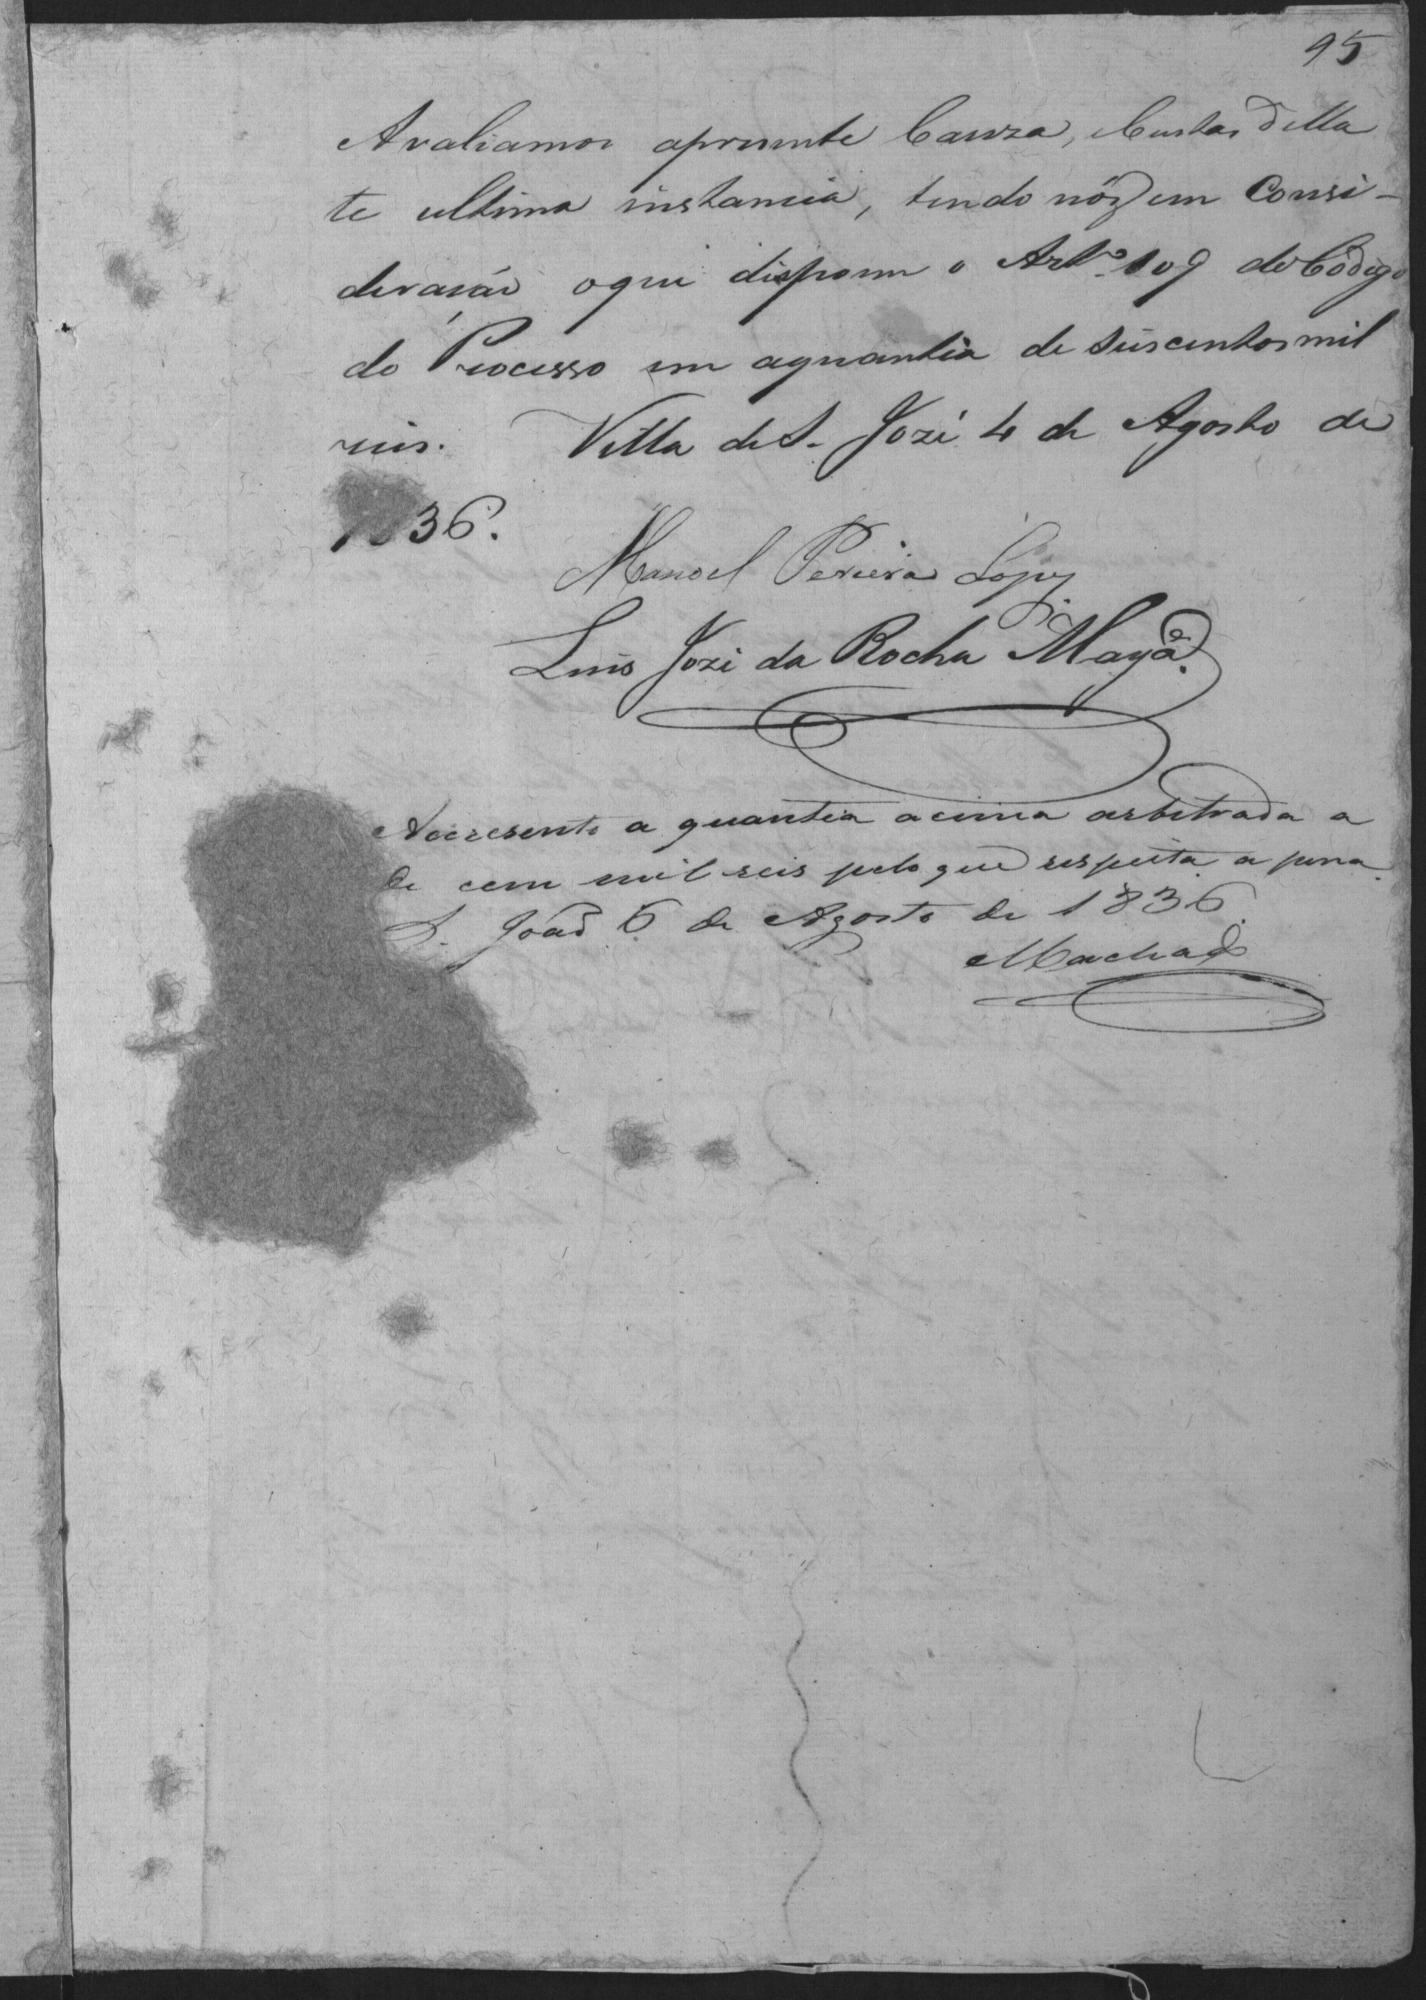 95
Avaliamos aprezente Cauza, eCustas della
te ultima instancia, tendo nós em Consi-
deracaó oque dispoem o Artº 109 do Códigó
do Processo em aquantia de seiscentos mil
reis. Villa de S. Jozé 4 de Agosto de
1836.
Manoel Pereira Lopes
Luis Jozé da Rocha Maya
Accrescento a quantia acima arbitrada a
de cem mil reis pelo que respeita a pena.
S. Joaõ 6 de Agosto de 1836.
Machado